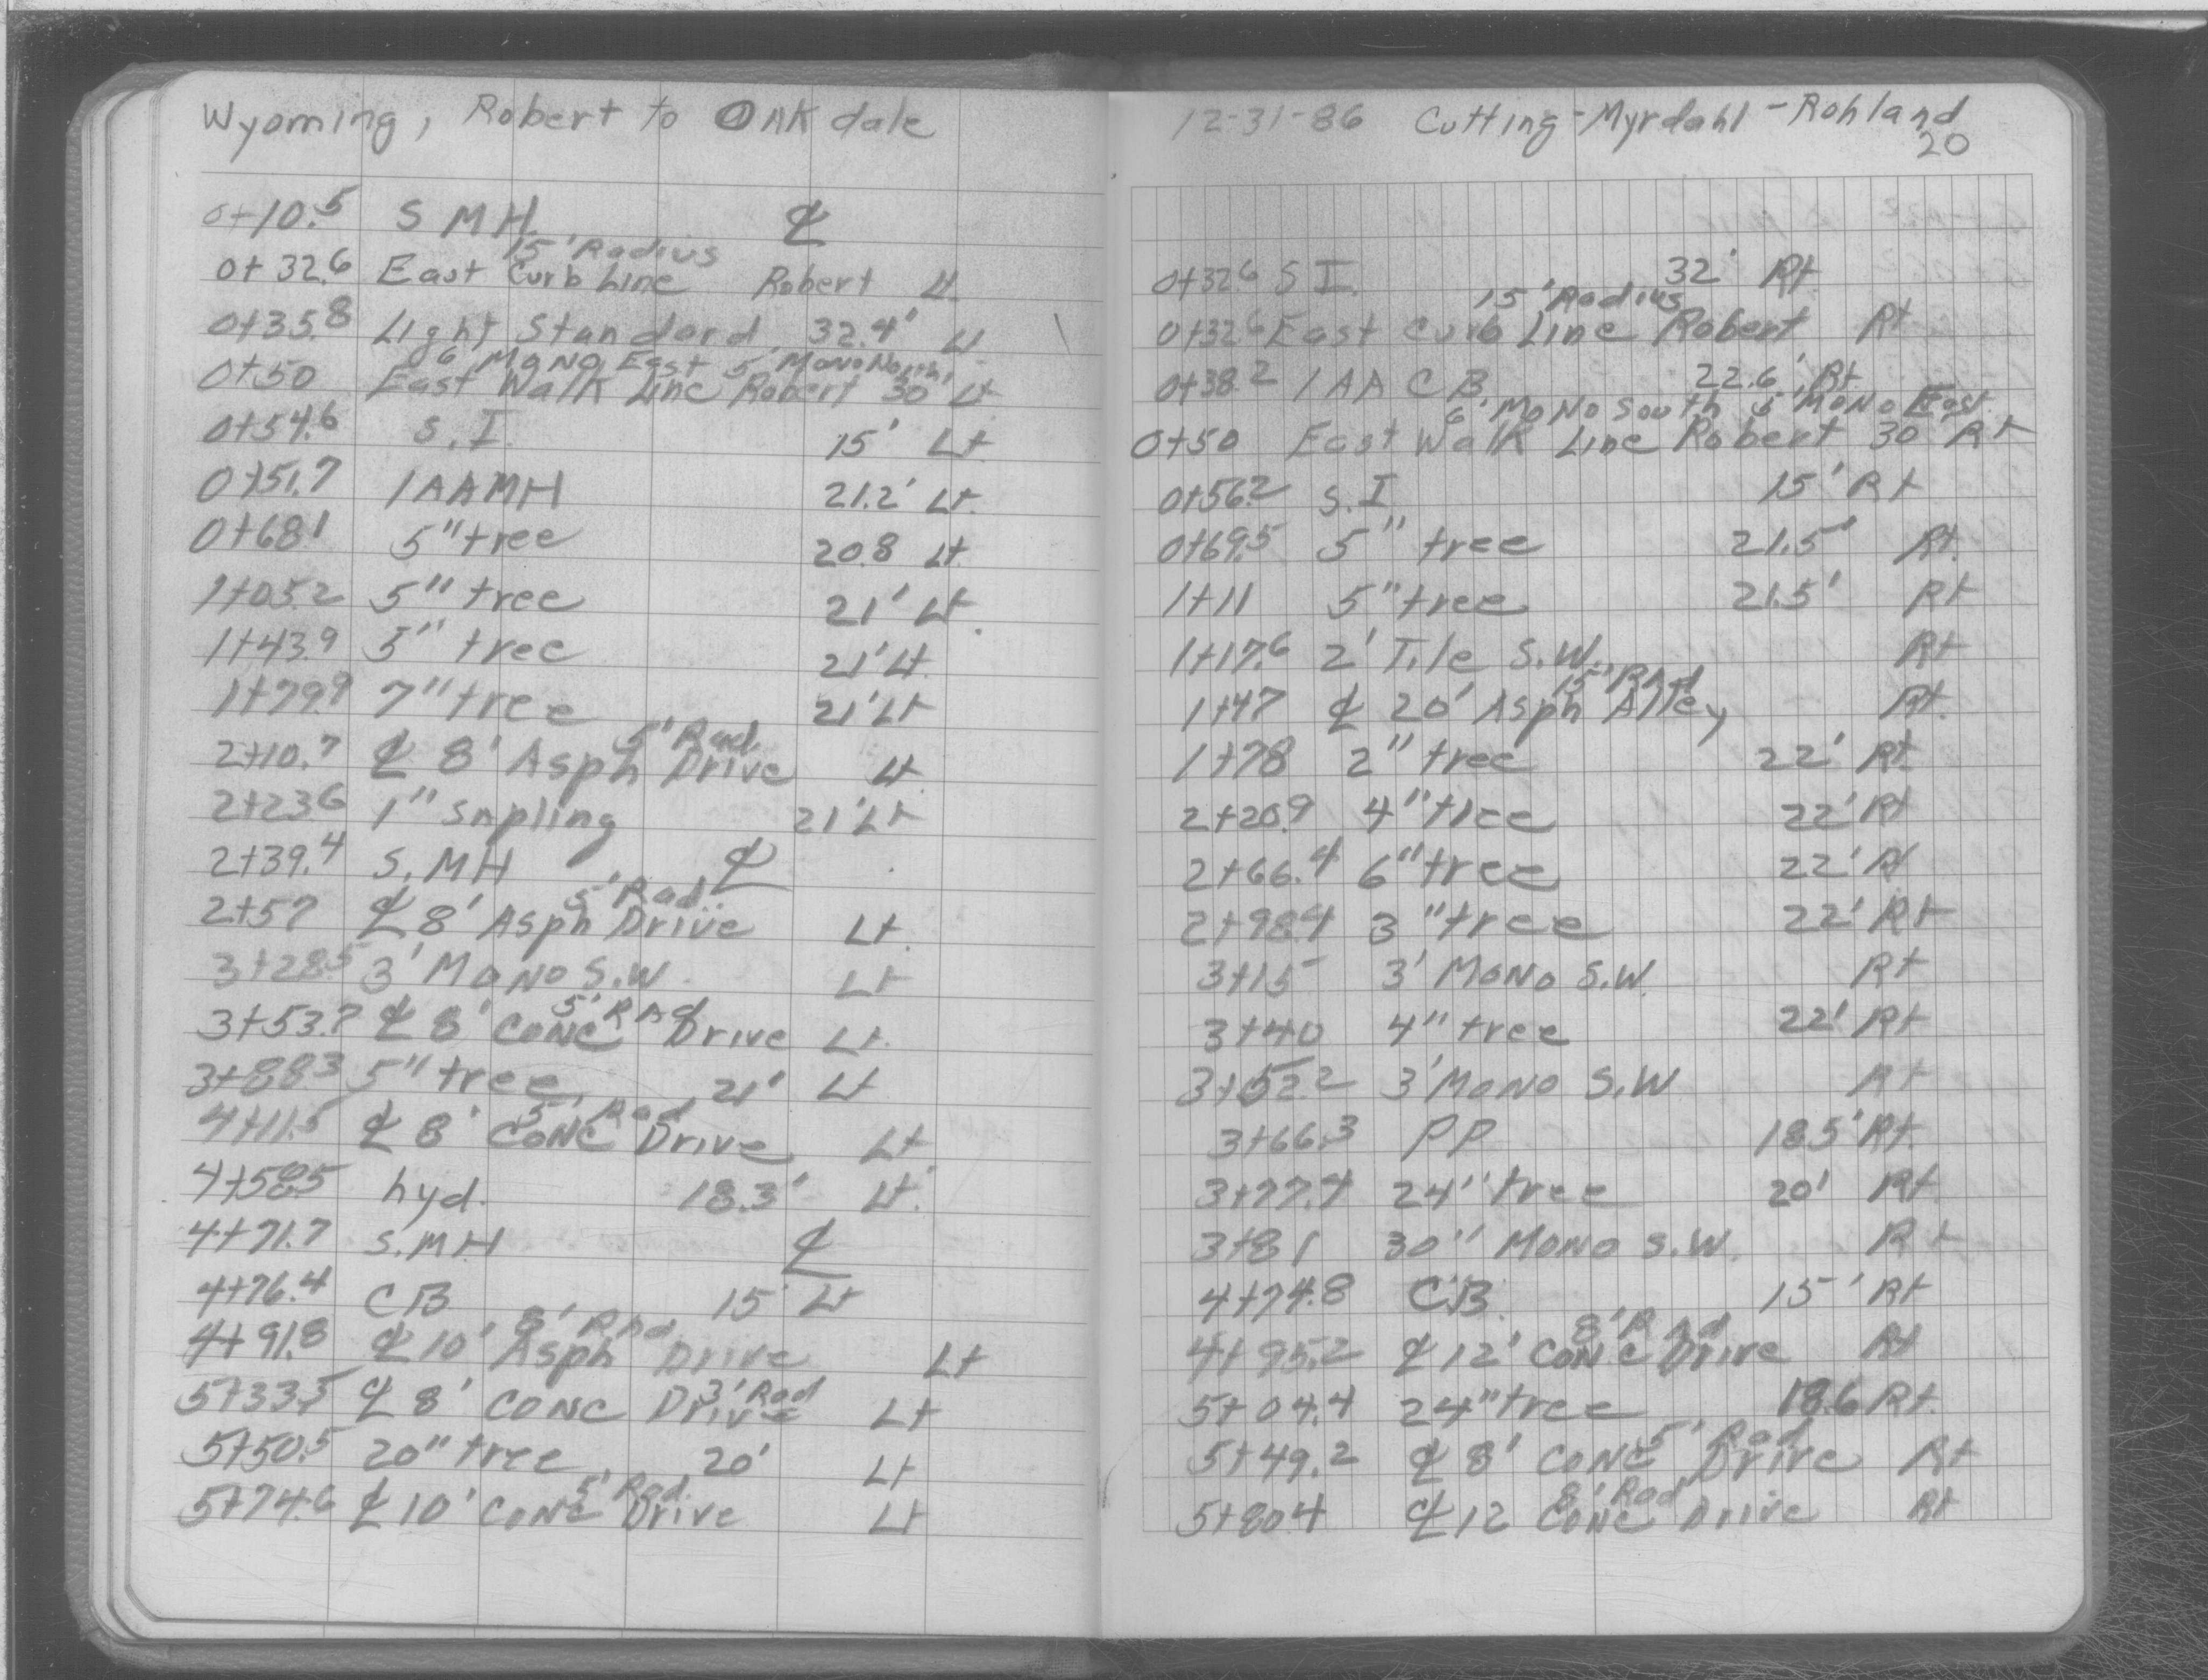 Wyoming, Robert to OAKdale
0+10.5 S MH. ℄
15' Radius
0+32.6 East Curb Line Robert Lt.
0+35.8 Light Standard 32.4' Lt
6' Mono East 5' Mono North
0+50 East Walk Line Robert 30' Lt
0+54.6 S.I. 15' Lt
0+51.7 1AAMH 21.2' Lt.
0+68.1 5" tree 20.8 Lt.
1+05.2 5" tree 21' Lt.
1+43.9 5" tree 21' Lt.
1+79.9 7" tree 21' Lt
5' Rad.
2+10.7 ℄ 8' Asph Drive Lt
2+23.6 1" Sapling 21' Lt
2+39.4 S.MH ℄
5' Rad.
2+57 ℄ 8' Asph Drive Lt.
3+28.5 3' Mono S.W. Lt
5' RAd
3+53.7 ℄ 8' Conc Drive Lt.
3+88.3 5" tree 21' Lt
5' Rad
4+11.5 ℄ 8' Conc Drive Lt
4+58.5 hyd. 18.3' Lt.
4+71.7 S.MH ℄
4+76.4 CB 15' Lt
8' RAd
4+91.8 ℄ 10' Asph Drive Lt
3' Rad
5+33.5 ℄ 8' Conc Drive Lt
5+50.5 20" tree 20' Lt
5' Rad.
5+74.6 ℄ 10' Conc Drive Lt
12-31-86 Cutting-Myrdahl-Rohland
20
0+32.6 S I. 32' Rt
15' Radius
0+32.6 East Curb Line Robert Rt
0+38.2 1AA CB 22.6' Rt
6' Mono South 5' Mono East
0+50 East Walk Line Robert 30' Rt
0+56.2 S.I 15' Rt
0+69.5 5" tree 21.5' Rt.
1+11 5" tree 21.5' Rt
1+17.6 2' Tile S.W. Rt
15' Rad
1+47 ℄ 20' Asph Alley Rt.
1+78 2" tree 22' Rt.
2+20.9 4" tree 22' Rt
2+66.4 6" tree 22' Rt
2+98.4 3" tree 22' Rt
3+15 3' Mono S.W. Rt
3+40 4" tree 22' Rt
3+52.2 3' Mono S.W Rt
3+66.3 PP 18.5' Rt.
3+77.4 24" tree 20' Rt.
3+81 30" Mono S.W. Rt
4+74.8 CB. 15' Rt
8' Rad
4+95.2 ℄ 12' Conc Drive Rt
5+04.4 24" tree 18.6 Rt.
5' Rad
5+49.2 ℄ 8' Conc Drive Rt
8' Rad
5+80.4 ℄ 12 Conc Drive Rt